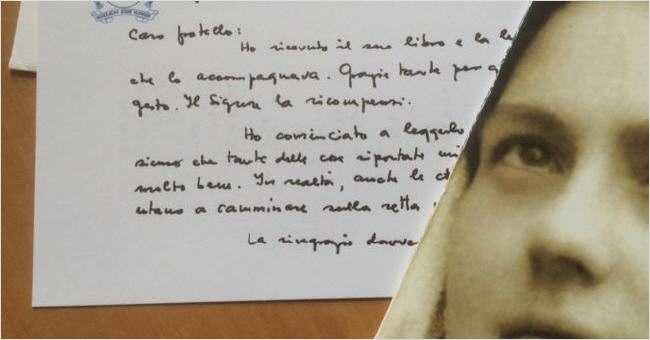 Caro fratello:
Ho ricevuto il suo libro e la le
che lo accompagnava. Grazie tante per q
gesto. Il Signore la ricompensi.
Ho cominciato a leggerlo
sicuro che tante delle cose riportate mi
molto bene. In realtà, anche le ci
utano a camminare sulla retta
La ringrazio davve